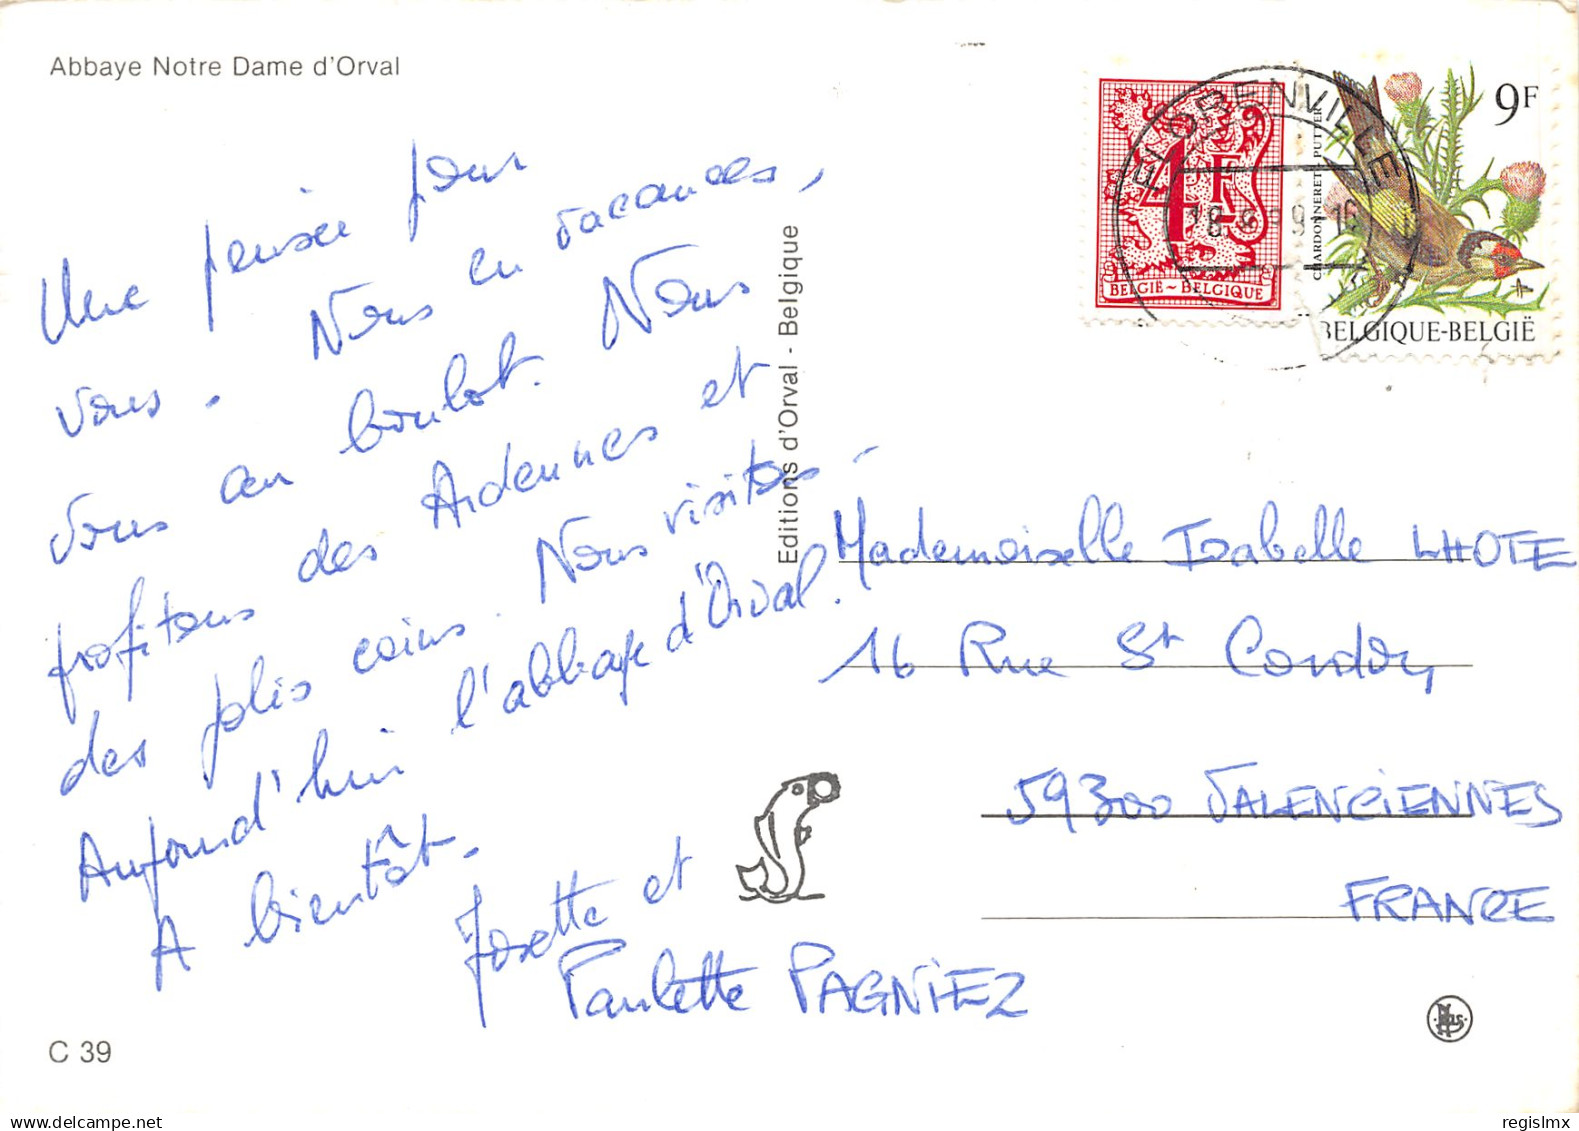 Abbaye Notre Dame d'Orval
Une pensée pour
vous. Nous en vacances,
vous au boulot. Nous
profitons des Ardennes et
des jolis coins. Nous visitons
Aujourd'hui l'abbaye d'Orval.
A bientôt.
Josette et
Paulette PAGNIEZ
C 39
Editions d'Orval - Belgique
FLORENVILLE
4F
BELGIË~BELGIQUE
CHARDONNERET PUTTER
9F
BELGIQUE-BELGIË
Mademoiselle Isabelle LHOTE
16 Rue St Cordon
59300 VALENCIENNES
FRANCE
regislmx